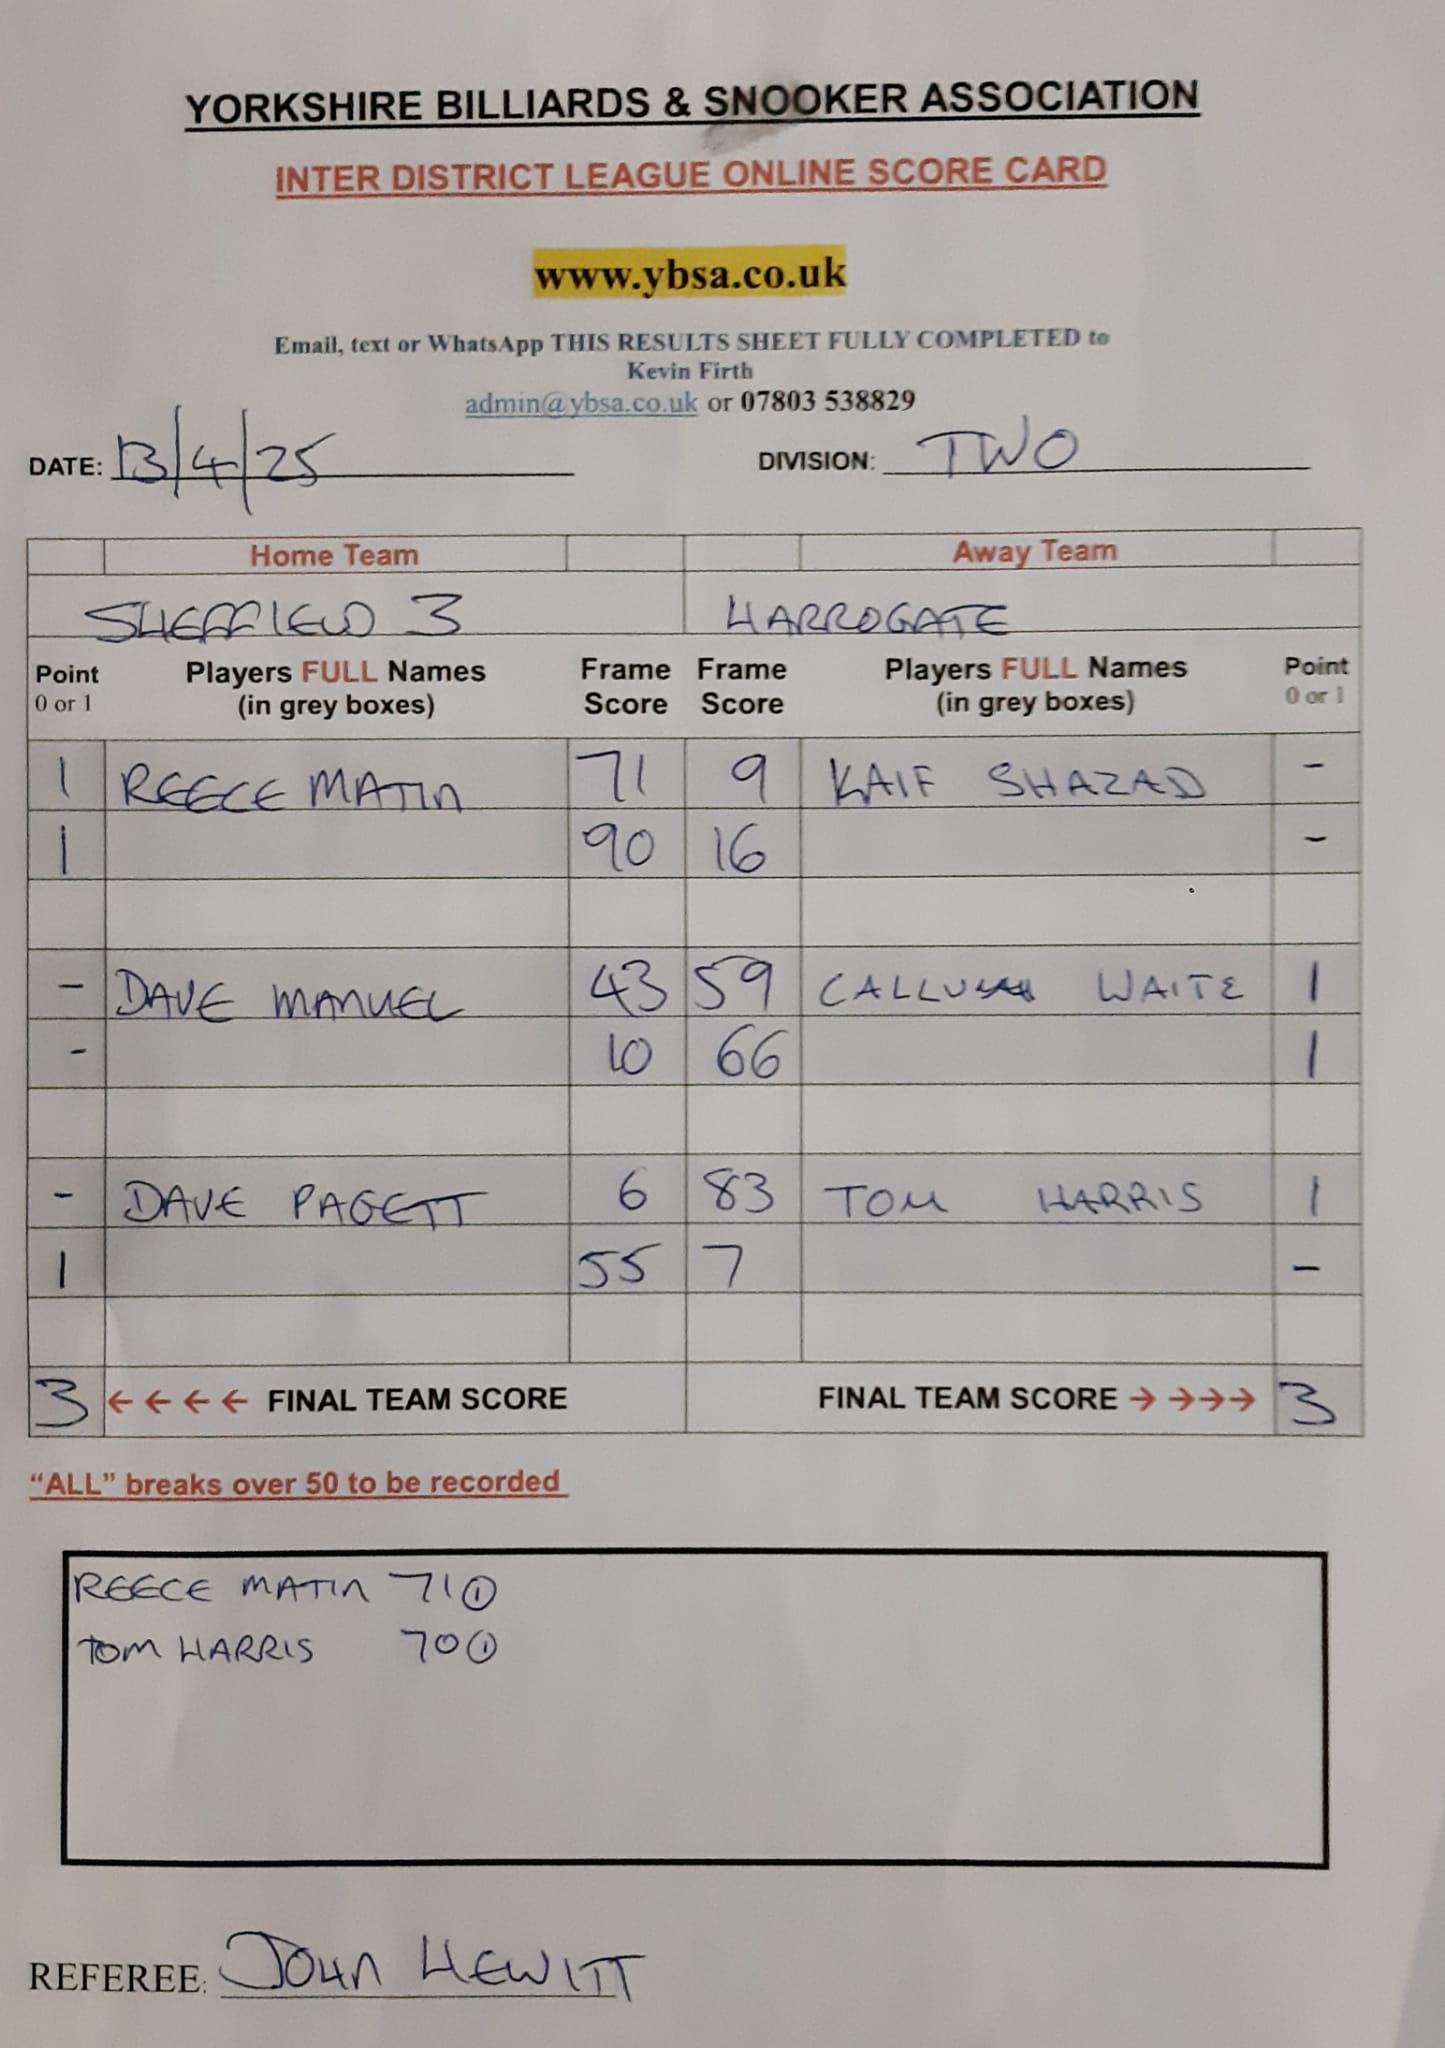 YORKSHIRE BILLIARDS & SNOOKER ASSOCIATION
INTER DISTRICT LEAGUE ONLINE SCORE CARD
www.ybsa.co.uk
Email, text or WhatsApp THIS RESULTS SHEET FULLY COMPLETED to
Kevin Firth
admin@ybsa.co.uk or 07803 538829
DATE: 13/4/25 DIVISION: TWO
Home Team Away Team
SHEFFIELD 3 HARROGATE
Point Players FULL Names Frame Frame Players FULL Names Point
0 or 1 (in grey boxes) Score Score (in grey boxes) 0 or 1
1 REECE MATIN 71 9 KAIF SHAZAD -
1 90 16 -
- DAVE MANUEL 43 59 CALLUM WAITE 1
- 10 66 1
- DAVE PAGETT 6 83 TOM HARRIS 1
1 55 7 -
3 ←←←← FINAL TEAM SCORE FINAL TEAM SCORE →→→→ 3
“ALL” breaks over 50 to be recorded
REECE MATIN 71 ①
TOM HARRIS 70 ①
REFEREE: JOHN HEWITT